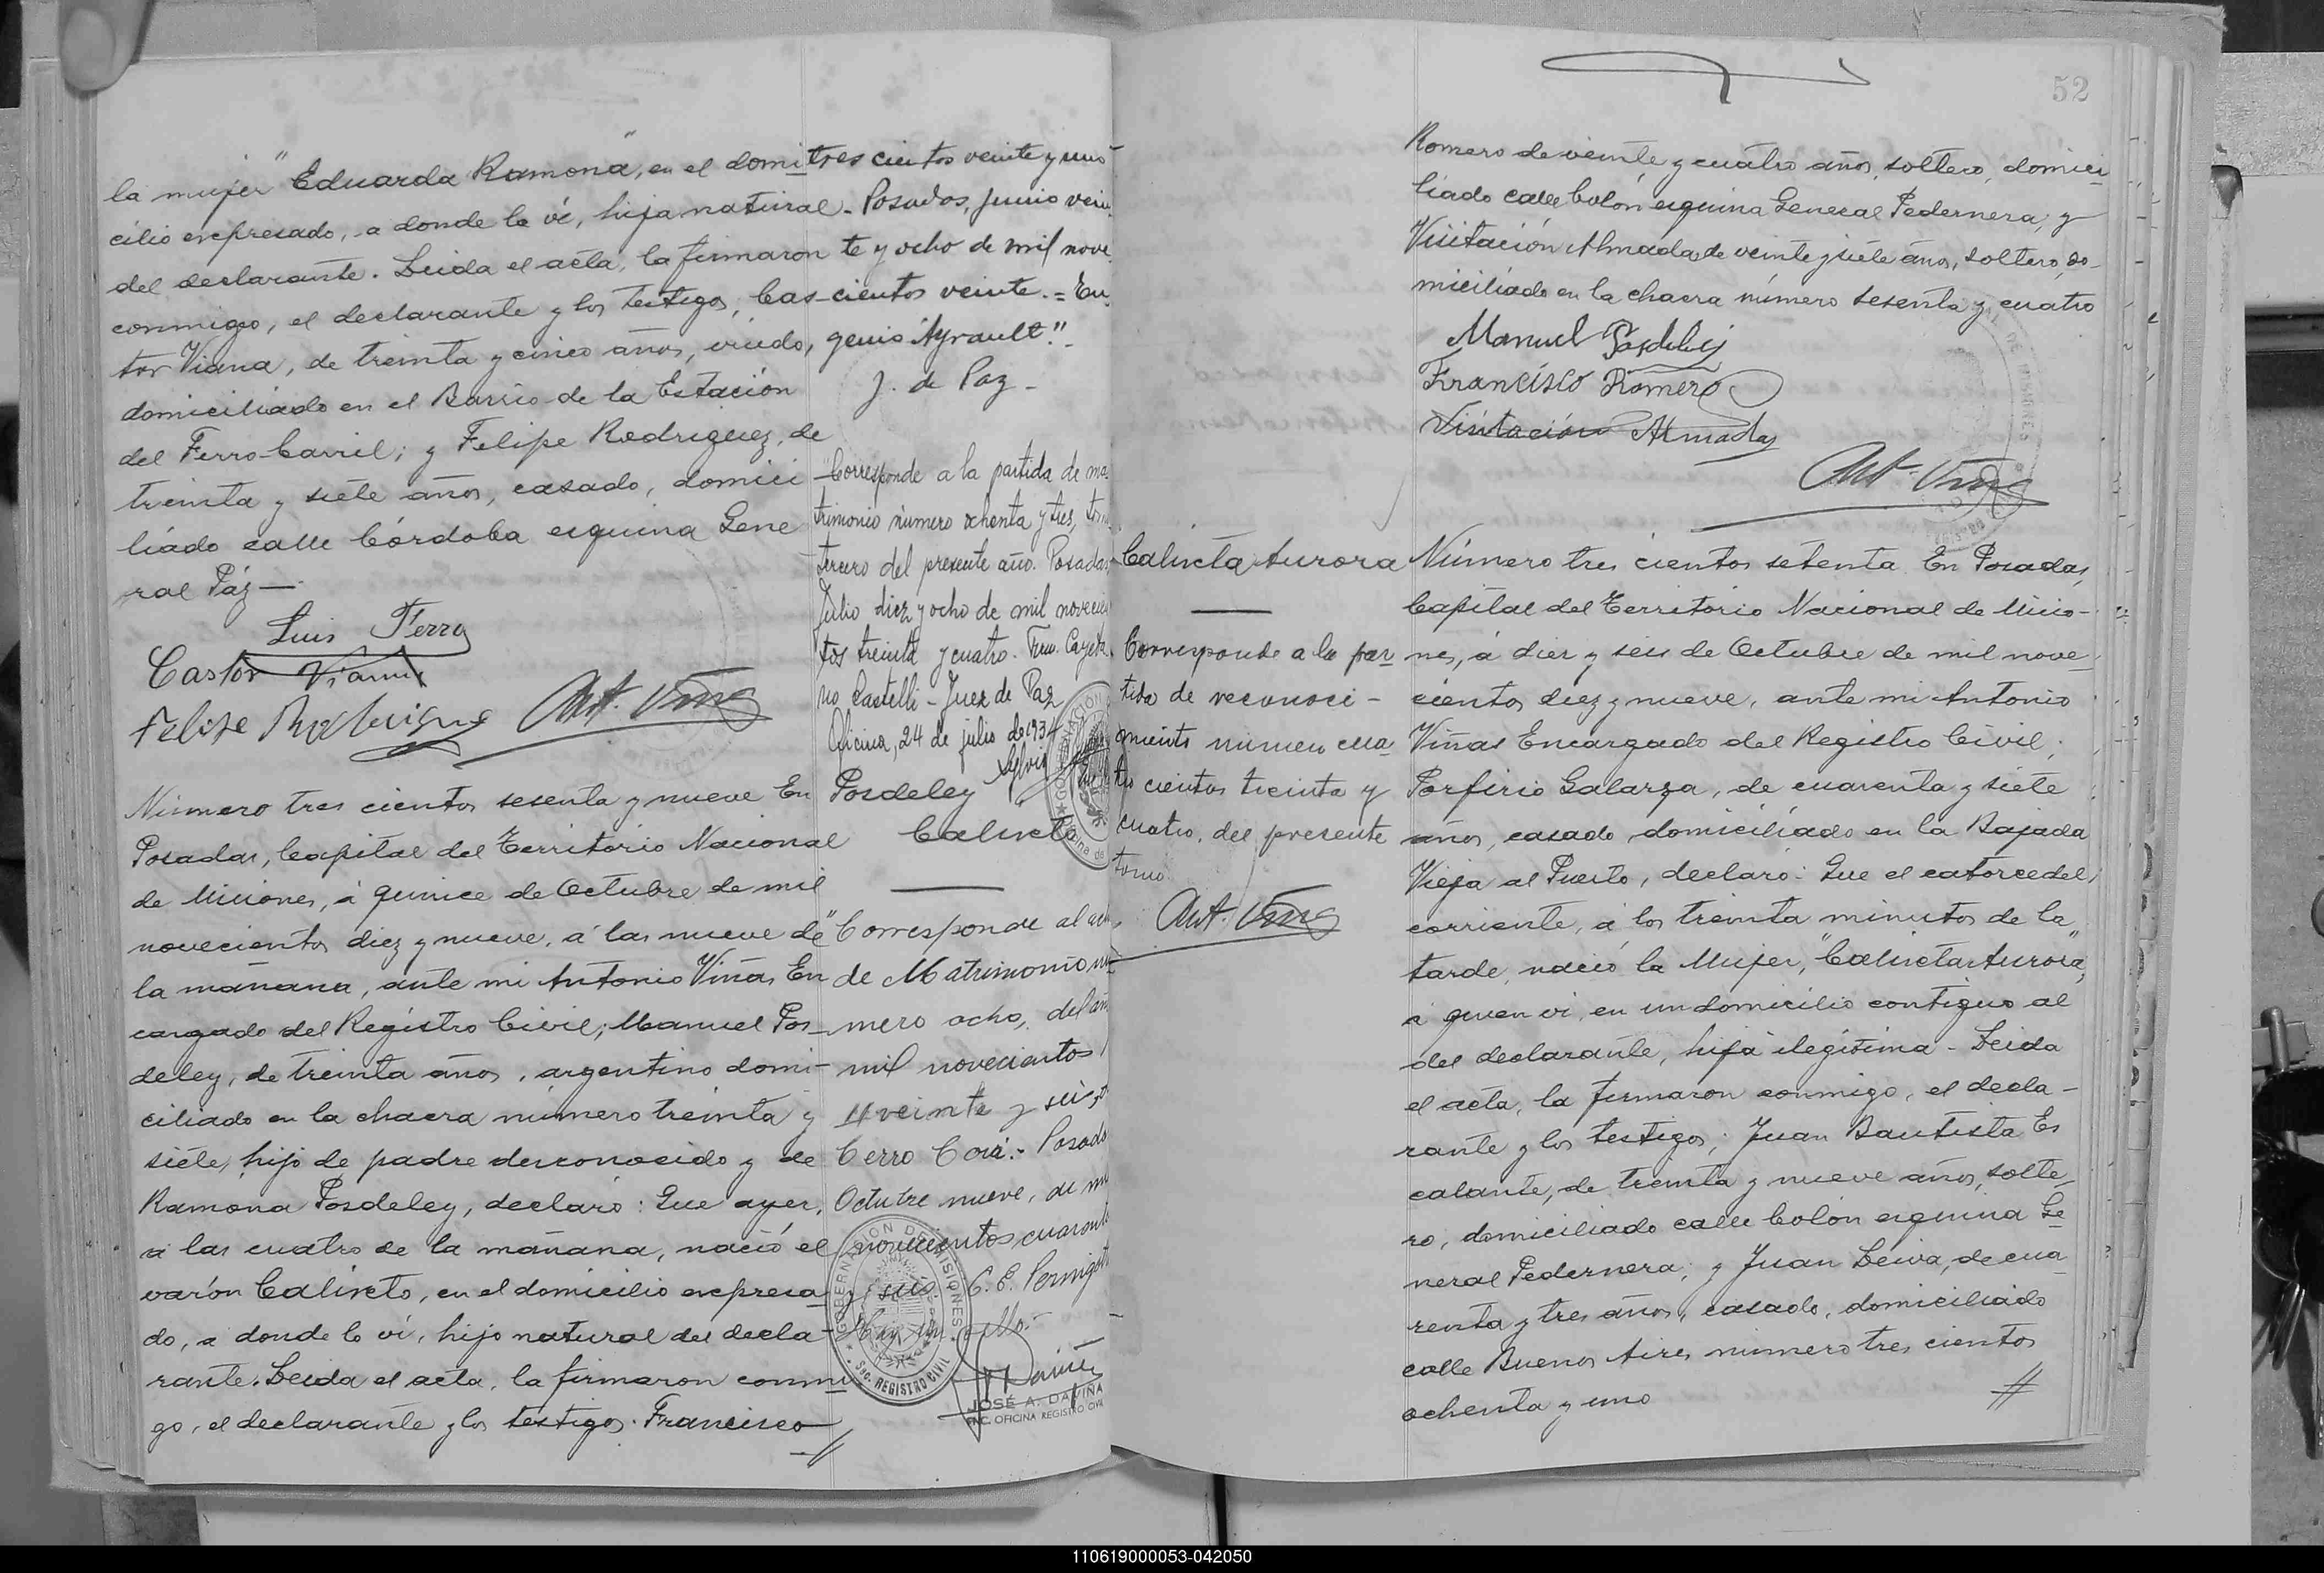 la mujer "Eduarda Ramona", en el domi
cilio expresado, a donde la ví, hija natural
del declarante. Leida el acta, la firmaron
conmigo, el declarante y los testigos, Cas-
tor Viana, de treinta y cinco años, viudo,
domiciliado en el Barrio de la Estación
del Ferro-Carril; y Felipe Rodriguez, de
treinta y siete años, casado, domici
liado calle Córdoba esquina Gene
ral Páz—
Luis Ferry
Castor Viana
Felipe Rodriguez Ant. Viñas
Número tres cientos sesenta y nueve En
Posadas, Capital del Territorio Nacional
de Misiones, á quince de Octubre de mil
novecientos diez y nueve, á las nueve de
la mañana, ante mi Antonio Viñas En
cargado del Registro Civil; Manuel Pos-
deley, de treinta años, argentino domi-
ciliado en la chacra número treinta y
siete, hijo de padre desconocido y de
Ramona Posdeley, declaró: Que ayer,
á las cuatro de la mañana, nació el
varón Calixto, en el domicilio expresa
do, a donde lo ví, hijo natural del decla-
rante. Leida el acta, la firmaron conmi
go, el declarante y los testigos. Francisco
tres cientos veinte y uno
Posadas, junio vein
te y ocho de mil nove
cientos veinte.= Eu
genio Ayrault".
J. de Paz-
"Corresponde a la partida de ma
trimonio número ochenta y tres, tomo
tercero del presente año. Posadas,
Julio diez y ocho de mil novecien
tos treinta y cuatro. Fdo. Cayeta
no Castelli - Juez de Paz
Oficina, 24 de julio de 1934
Posdeley
Calixto
"Corresponde al acta
de Matrimonio nú
mero ocho, del año
mil novecientos
veinte y seis,
Cerro Corá.- Posadas
Octubre nueve, de mil
novecientos cuarenta
y seis.
GOBERNACION DE MISIONES
Sec. REGISTRO CIVIL
JOSÉ A. DAVIÑA
ENC. OFICINA REGISTRO CIVIL
52
Romero de veinte y cuatro años, soltero, domici
liado calle Colón esquina General Pedernera, y
Visitación Almada, de veinte y siete años, soltero, do-
miciliado en la chacra número sesenta y cuatro
Manuel Posdeley
Francisco Romero
Visitación Almada
Ant. Viñas
Calixta Aurora
Corresponde a la par
tida de reconoci-
miento numero cua
tro cientos treinta y
cuatro, del presente
tomo
Ant. Viñas
Número tres cientos setenta En Posadas,
Capital del Territorio Nacional de Misio-
nes, á diez y seis de Octubre de mil nove
cientos diez y nueve, ante mi Antonio
Viñas Encargado del Registro Civil;
Porfirio Galarza, de cuarenta y siete
años, casado, domiciliado en la Bajada
Vieja al Puerto, declaró: Que el catorce del
corriente, á los treinta minutos de la
tarde, nació la Mujer, "Calixta Aurora",
a quien ví, en un domicilio contiguo al
del declarante, hija ilegítima - Leida
el acta, la firmaron conmigo, el decla-
rante y los testigos; Juan Bautista Es
calante, de treinta y nueve años, solte
ro, domiciliado calle Colón esquina Ge
neral Pedernera; y Juan Leiva, de cua
renta y tres años, casado, domiciliado
calle Buenos Aires número tres cientos
ochenta y uno
110619000053-042050